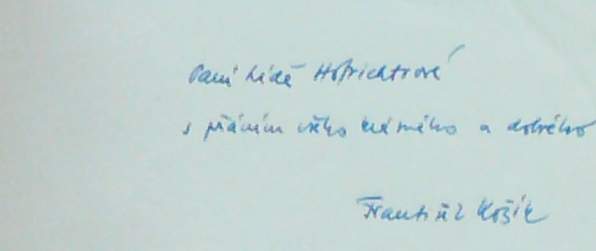 Paní Lídě Hofrichtrové
s přáním všeho krásného a dobrého
František Kožík